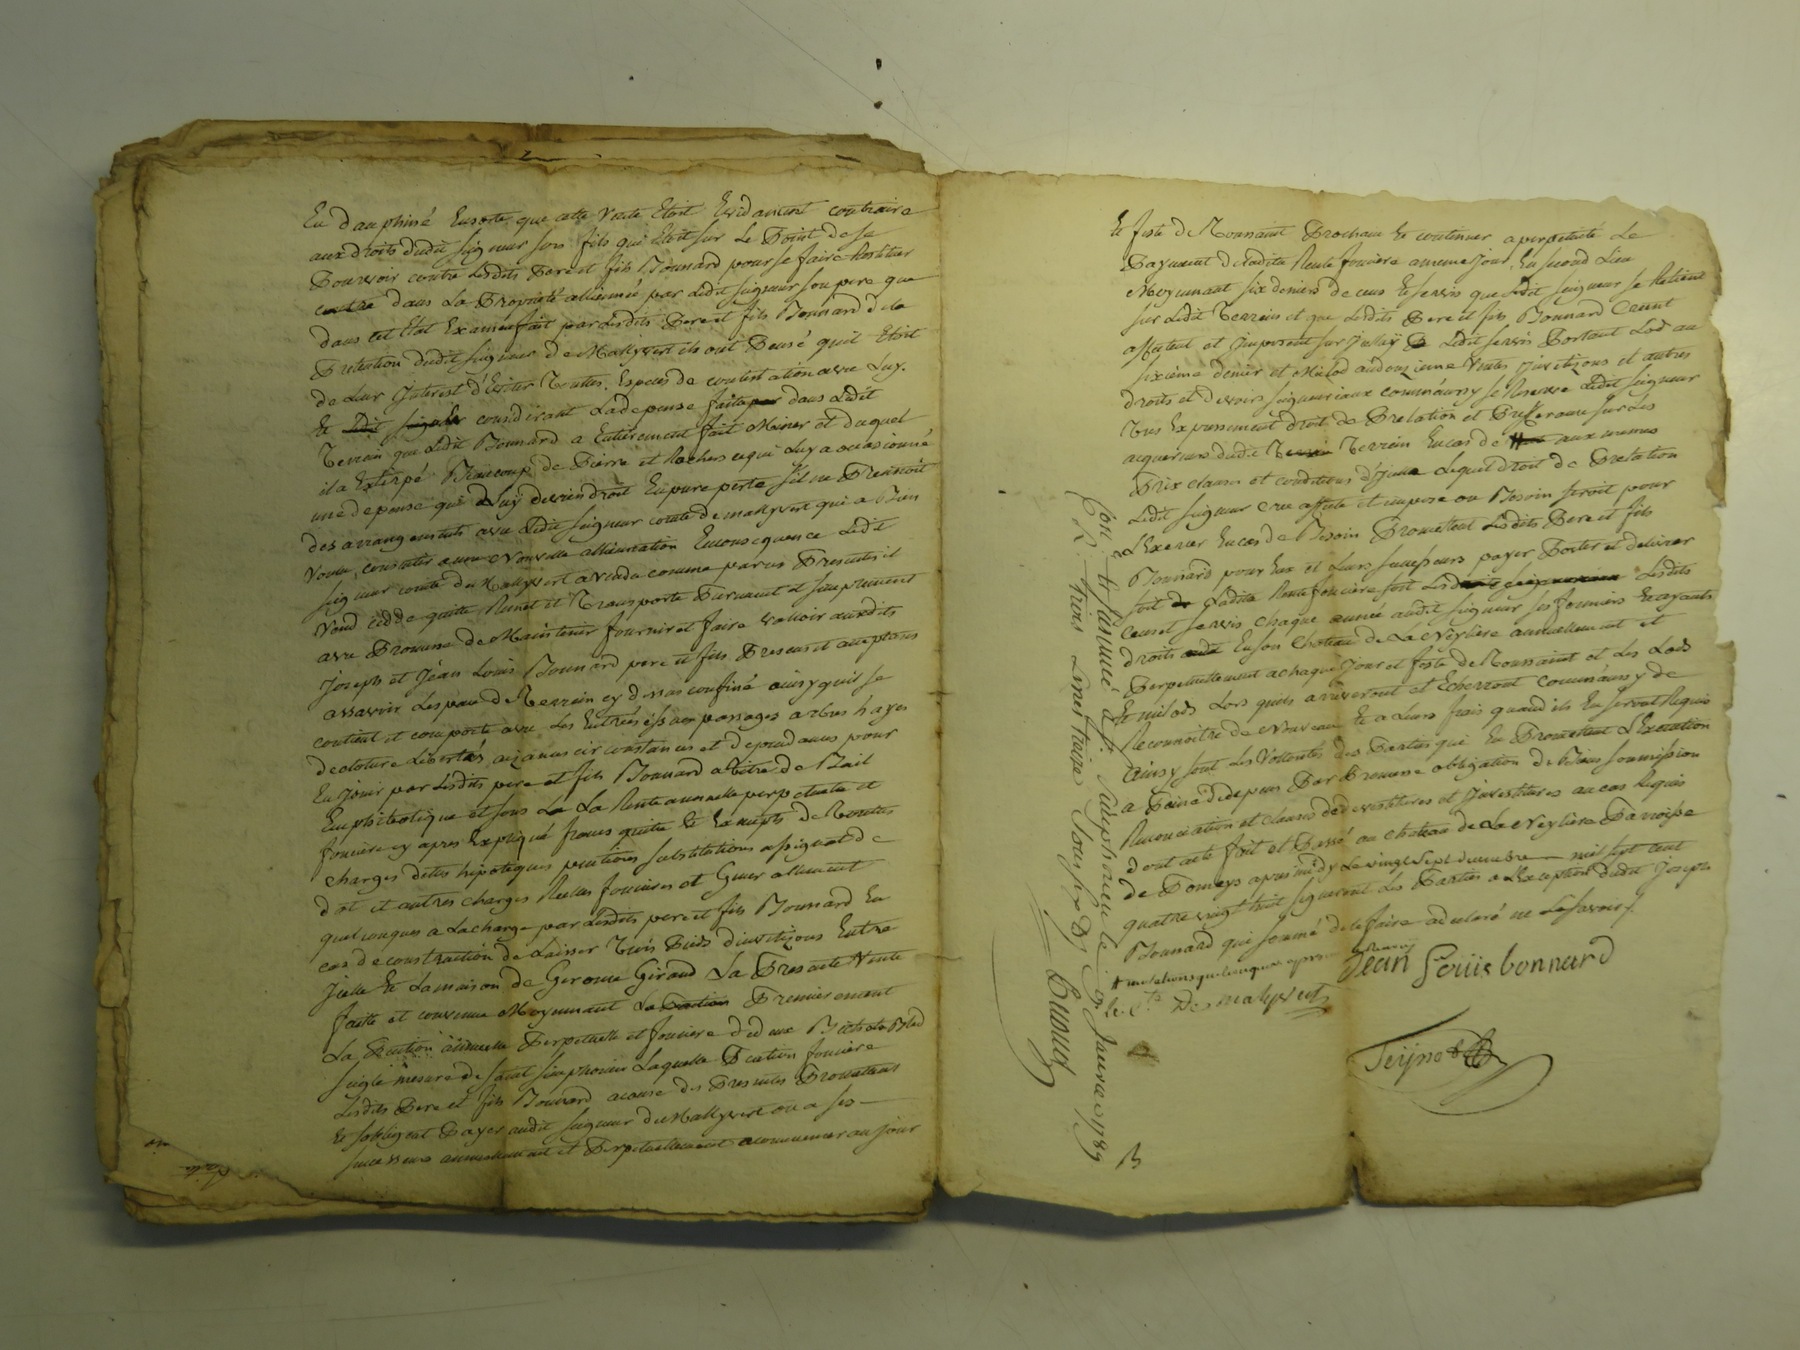 En dauphiné Ensorte que cette Vente Etoit Evidament contraire
aux droits dudit seigneur son fils qui Etoit sur Le Point de se
Pourvoir contre Lesdits Pere et fils Bonnard pour se faire Restituer
dans La Propriété alliennée par Ledit seigneur son pere que
dans cet Etat Examen fait par Lesdits Pere et fils Bonnard de la
Pretention dudit seigneur de Mallyvert ils ont Pensé qu'il Etoit
de Leur Interest d'Eviter Toutes Especes de contestation avec Luy.
Et considerant La depense faite dans Ledit
Terrein que Ledit Bonnard a Entierement fait Miner et duquel
il a Extirpé Beaucoup de Pierre et Rochers ce qui Luy a occasionné
une depense qui Luy deviendroit En pure perte s'il ne Prennoit
des arrangements avec Ledit seigneur comte de mallyvert qui a Bien
Voulu consentir a une Nouvelle alliennation En consequence Ledit
seigneur comte de Mallyvert a Vendu comme par ces Presentes il
Vend cedde quitte Remet et Transporte Purement et simplement
avec Promesse de Maintenir fournir et faire valloir auxdits
Joseph et Jean Louis Bonnard pere et fils Presents et acceptans
assavoir L'espace de Terrein cy dessus confiné ainsy qu'il se
contient et comporte avec Les Entrées issues passages arbres hayes
de cloture Libertés aizances circonstances et dependances pour
En Jouir par Lesdits pere et fils Bonnard a titre de Bail
Emphiteotique et sous La Rente annuelle perpetuelle et
fonciere cy apres Expliqué francs quitte Et Exempts de Touttes
charges dettes hipoteques substitutions assignat de
dot et autres charges Reelles foncieres et Generallement
quelconques a La charge par Lesdits pere et fils Bonnard En
cas de construction de Laisser Trois Pieds d'invetizons Entre
Icelle Et La maison de Gerome Giraud La Presente Vente
faitte et convenue Moyennant Premierement
La Pention annuelle Perpetuelle et fonciere de deux Bichets Bled
seigle mesure de saint simphorien Laquelle Pention fonciere
Lesdits Pere et fils Bonnard a cause des Presentes Promettent
Et s'obligent Payer audit seigneur de Mallyvert ou a ses
successeurs annuellement et Perpetuellement a commencer au jour
Et feste de Toussaint Prochain Et continuer a perpetuité Le
Payement de Ladite Rente fonciere a meme Jour, En second Lieu
Moyennant six deniers de cens Et servis que Ledit seigneur se Retient
sur Ledit Terrein et que Lesdits Pere et fils Bonnard Creent
affectent et Imposent sur Icelluy Ledit servis Portant Lod au
sixieme denier et Milod au douzieme Ventes Invetizons et autres
droits et devoirs seigneuriaux comme aussy se Reserve Ledit seigneur
Tres Expressement droit de Prelation et Prefferance sur Les
acquereurs dudit Terrein En cas de aux memes
Prix clauses et conditions d'Icelle Lequel droit de Prelation
Ledit seigneur cree affecte et impose ou Besoin seroit pour
L'Exercer En cas de Besoin Promettent Lesdits Pere et fils
Bonnard pour Eux et Leurs successeurs payer Porter et delivrer
soit Ladite Rente fonciere soit Lesdits
Cens et servis chaque année audit seigneur ses fermiers Et ayants
droits En son Chateau de La Neyliere annuellement et
Perpetuellement a chaque jour et feste de Toussaint et Les Lods
Et milods Lors qu'ils arriveront et Echerront comme aussy de
Reconnoitre de Nouveau Et a Leurs frais quand ils En seront Requis
Ainsy sont Les Vollontés des Parties qui En Promettent L'Execution
a Peine de depens Par Promesse obligation de Biens soumission
Renonciation et clauses de devestitures et Investitures au cas Requis
dont acte fait et Passé au chateau de La Neyliere Paroisse
de Pomeys apres midy Le vingt sept decembre mil sept cent
quatre vingt huit signeront Les Parties a L'Exception dudit Joseph
Bonnard qui sommé de le faire a declaré ne Le savoir.
Jean Louis bonnard
le Cte De mallyvert
Teyno
Con. & insinué à St Saphorien le 9 Janvier 1789
R. trois Livres treize sous